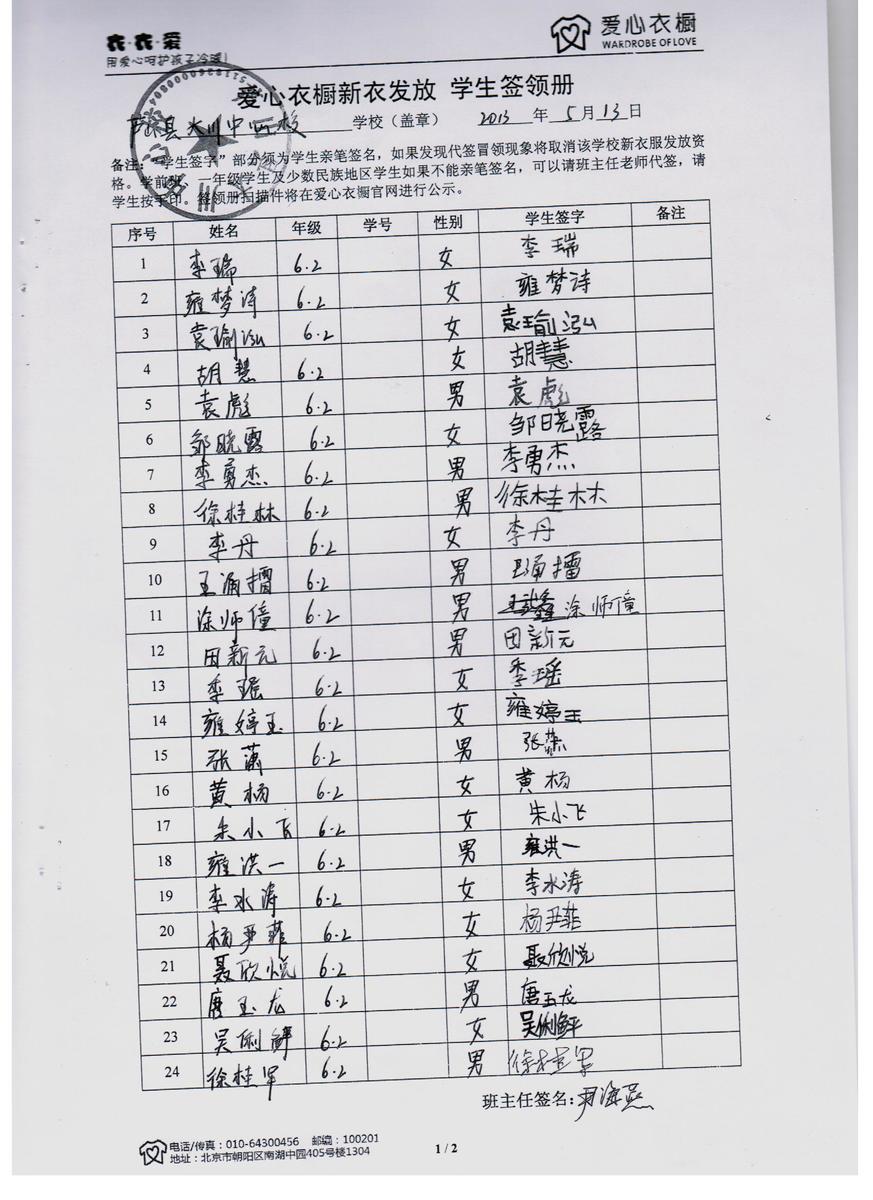 衣·衣·爱
用爱心呵护孩子冷暖!
爱心衣橱
WARDROBE OF LOVE
爱心衣橱新衣发放 学生签领册
学校（盖章） 2013 年 5 月 13 日
备注："学生签字"部分须为学生亲笔签名，如果发现代签冒领现象将取消该学校新衣服发放资
格。学前班、一年级学生及少数民族地区学生如果不能亲笔签名，可以请班主任老师代签，请
学生按手印。签领册扫描件将在爱心衣橱官网进行公示。
序号 姓名 年级 学号 性别 学生签字 备注
1 李瑞 6.2 女 李瑞
2 雍梦诗 6.2 女 雍梦诗
3 袁瑜泓 6.2 女 袁瑜泓
4 胡慧 6.2 女 胡慧
5 袁彪 6.2 男 袁彪
6 邹晓露 6.2 女 邹晓露
7 李勇杰 6.2 男 李勇杰
8 徐桂林 6.2 男 徐桂林
9 李丹 6.2 女 李丹
10 王涌擂 6.2 男 王涌擂
11 涂师僮 6.2 男 涂师僮
12 田新元 6.2 男 田新元
13 李瑶 6.2 女 李瑶
14 雍婷玉 6.2 女 雍婷玉
15 张 6.2 男 张
16 黄杨 6.2 女 黄杨
17 朱小飞 6.2 女 朱小飞
18 雍洪一 6.2 男 雍洪一
19 李水涛 6.2 女 李水涛
20 杨尹菲 6.2 女 杨尹菲
21 聂欣悦 6.2 女 聂欣悦
22 唐玉龙 6.2 男 唐玉龙
23 吴俐鲆 6.2 女 吴俐鲆
24 徐桂军 6.2 男 徐桂军
班主任签名：尹海燕
电话/传真：010-64300456 邮编：100201
地址：北京市朝阳区南湖中园405号楼1304
1 / 2